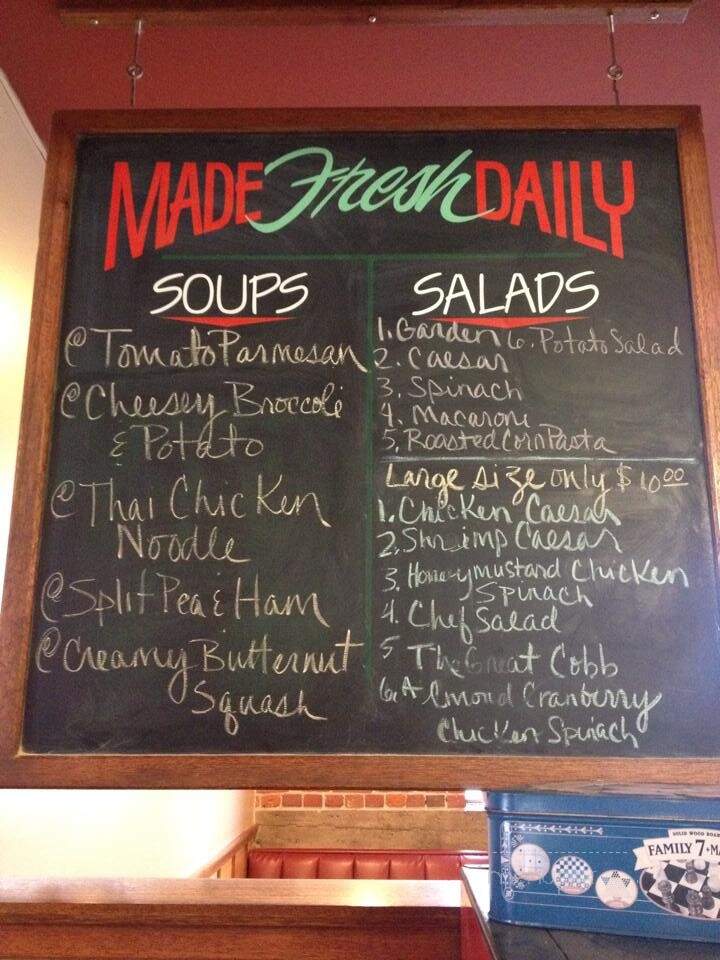 MADE Fresh DAILY
SOUPS
@ Tomato Parmesan
@ Cheesey Broccoli
& Potato
@ Thai Chicken
Noodle
@ Split Pea & Ham
@ Creamy Butternut
Squash
SALADS
1. Garden 6. Potato Salad
2. Caesar
3. Spinach
4. Macaroni
5. Roasted Corn Pasta
Large size only $10.00
1. Chicken Caesar
2. Shrimp Caesar
3. Honeymustard Chicken
Spinach
4. Chef Salad
5 The Great Cobb
6. Almond Cranberry
Chicken Spinach
SOLID WOOD
FAMILY 7